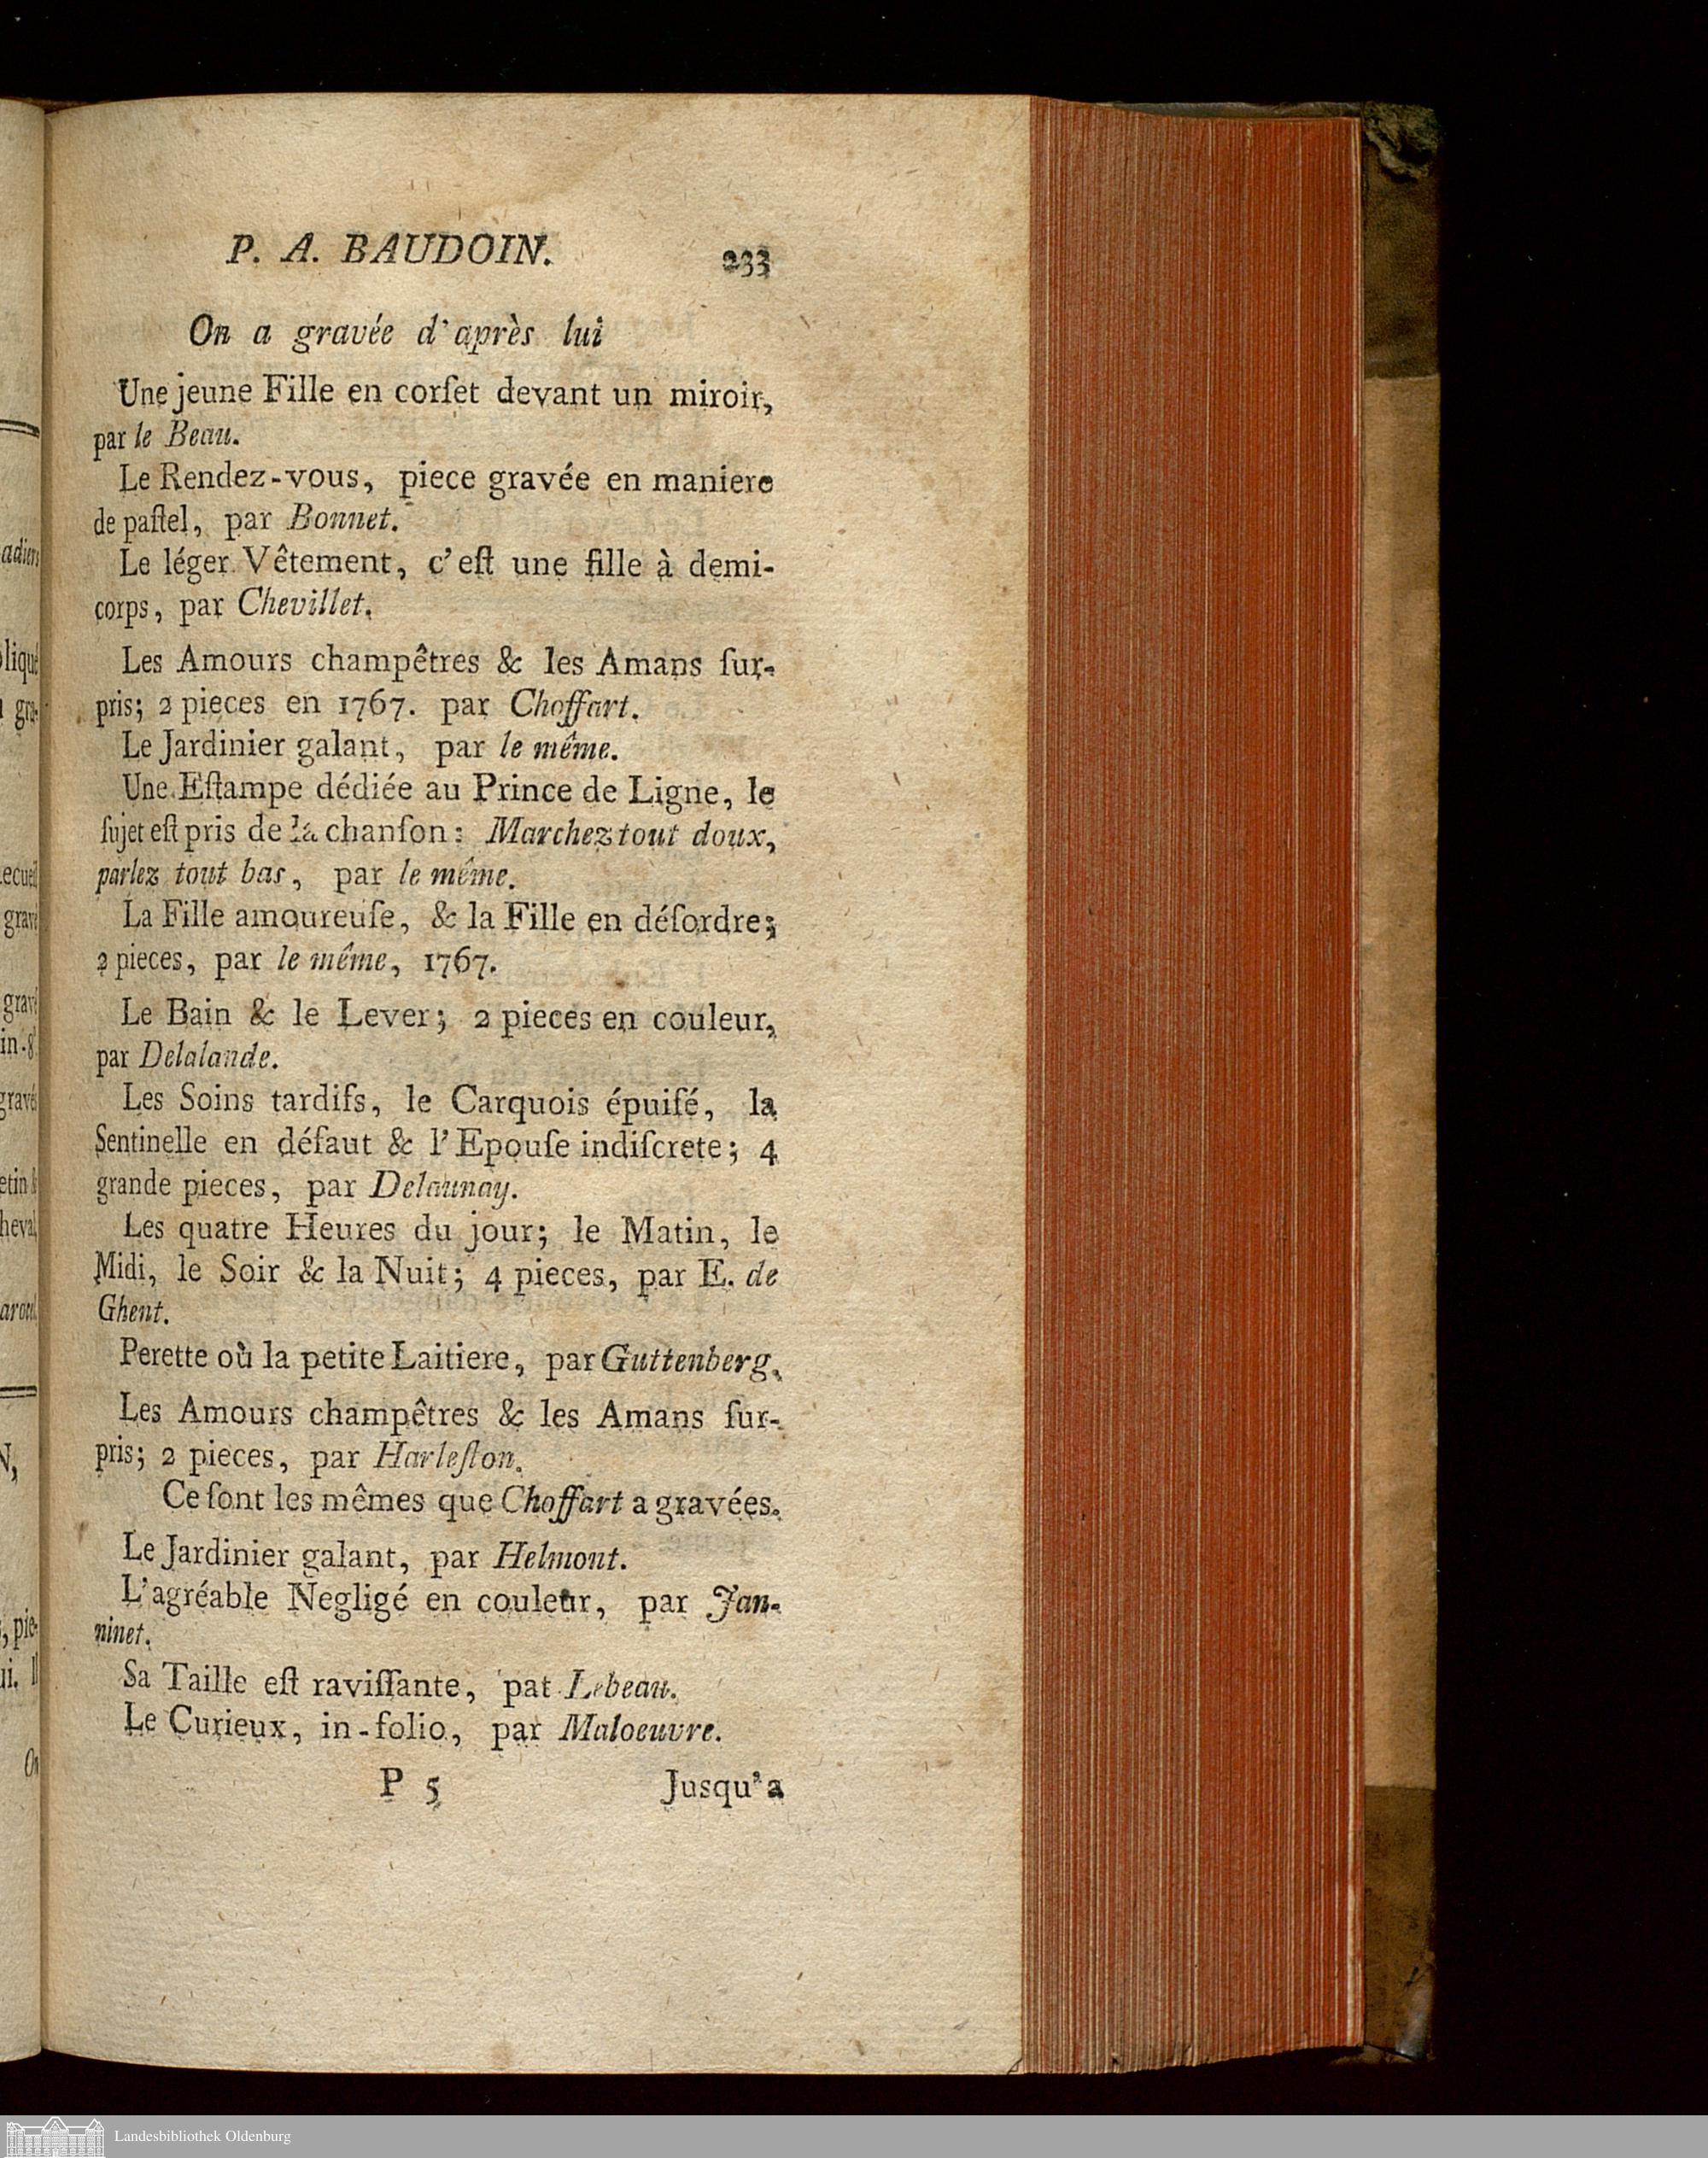 P. A. BAUDOIN. 233
On a gravée d'après lui
Une jeune Fille en corſet devant un miroir,
par le Beau.
Le Rendez-vous, piece gravée en maniere
de paſtel, par Bonnet.
Le léger Vêtement, c'eſt une fille à demi-
corps, par Chevillet.
Les Amours champêtres & les Amans ſur-
pris; 2 pieces en 1767. par Choffart.
Le Jardinier galant, par le même.
Une Eſtampe dédiée au Prince de Ligne, le
ſujet eſt pris de la chanſon: Marchez tout doux,
parlez tout bas, par le même.
La Fille amoureuſe, & la Fille en déſordre;
2 pieces, par le même, 1767.
Le Bain & le Lever; 2 pieces en couleur,
par Delalande.
Les Soins tardifs, le Carquois épuiſé, la
Sentinelle en défaut & l'Epouſe indiſcrete; 4
grande pieces, par Delaunay.
Les quatre Heures du jour; le Matin, le
Midi, le Soir & la Nuit; 4 pieces, par E. de
Ghent.
Perette où la petite Laitiere, par Guttenberg.
Les Amours champêtres & les Amans ſur-
pris; 2 pieces, par Harleſton.
Ce ſont les mêmes que Choffart a gravées.
Le Jardinier galant, par Helmont.
L'agréable Negligé en couleur, par Jan-
ninet.
Sa Taille eſt raviſſante, pat Lebeau.
Le Curieux, in-folio, par Maloeuvre.
P 5 Jusqu'a
adiers
pliqué
gra-
ecueil
gravé
gravé
in-8
gravé
etin
heval,
N,
, pie-
ui. Il
On
Landesbibliothek Oldenburg